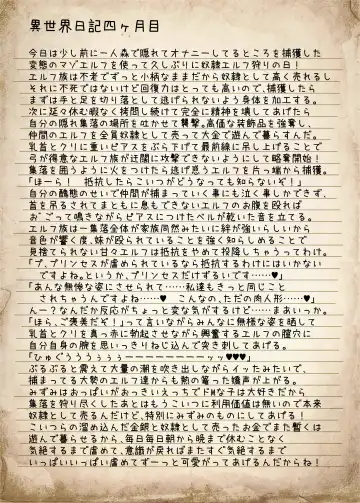 異世界日記四ヶ月目
今日は少し前に一人森で隠れてオナニーしてるところを捕獲した
変態のマゾエルフを使って久しぶりに奴隷エルフ狩りの日!
エルフ族は不老でずっと小柄なままだから奴隷として高く売れるし
それに不死ではないけど回復力はとっても高いので、捕獲したら
まずは手と足を切り落として逃げられないよう身体を加工する。
次に延々休む暇なく拷問し続けて完全に精神を壊してあげたら
自分の隠れ集落の場所を吐かせて襲撃。高価な装飾品を強奪し、
仲間のエルフを全員奴隷として売って大金で遊んで暮らすんだ。
乳首とクリに重いピアスをぶら下げて最前線に吊し上げることで
弓が得意なエルフ族が迂闊に攻撃できないようにして略奪開始!
集落を囲うように火をつけたら逃げ惑うエルフを片っ端から捕獲。
「ほーら! 抵抗したらこいつがどうなっても知らないぞ!」
自分の醜態のせいで仲間が捕まっていく事にも泣く事しかできず、
首を吊るされてまともに息もできないエルフのお腹を殴れば
おごって鳴きながらピアスにつけたベルが乾いた音を立てる。
エルフ族は一集落全体が家族同然みたいに絆が強いらしいから
音色が響く度、妹が殴られていることを強く知らしめることで
見捨てられない甘々エルフは抵抗をやめて投降しちゃうってわけ。
「プ、プリンセスが虐められているなら抵抗するわけにはいかない
ですよね。というか、プリンセスだけずるいです……♥」
「あんな無惨な姿にさせられて……私達もきっと同じこと
されちゃうんですよね……♥ こんなの、ただの肉人形……♥」
んー？なんだか反応がちょっと変な気がするけど……まあいっか。
「ほら、ご褒美だぞ!」って言いながらみんなに無様な姿を晒して
乳首とクリを真っ赤に勃起させながら興奮するエルフの膣穴に
自分自身の腕を思いっきりねじ込んで突き刺してあげる。
「ひゅぐうううぅぅぅーーーーーーーーーーッッ♥♥♥」
ぶるぶると震えて大量の潮を吹き出しながらイッたみたいで、
捕まってる大勢のエルフ達からも熱の篭った嬌声が上がる。
みずみはおっぱいがおっきいえっちでドMな子は大好きだから
集落を狩り尽くしたあとはもうこいつに利用価値は無いので本来
奴隷として売るんだけど、特別にみずみのものにしてあげる!
こいつらの溜め込んだ金銀と奴隷として売ったお金でまた暫くは
遊んで暮らせるから、毎日毎日朝から晩まで休むことなく
気絶するまで虐めて、意識が戻ればまたすぐ気絶するまで
いっぱいいっぱい虐めてずーっと可愛がってあげるんだからね!